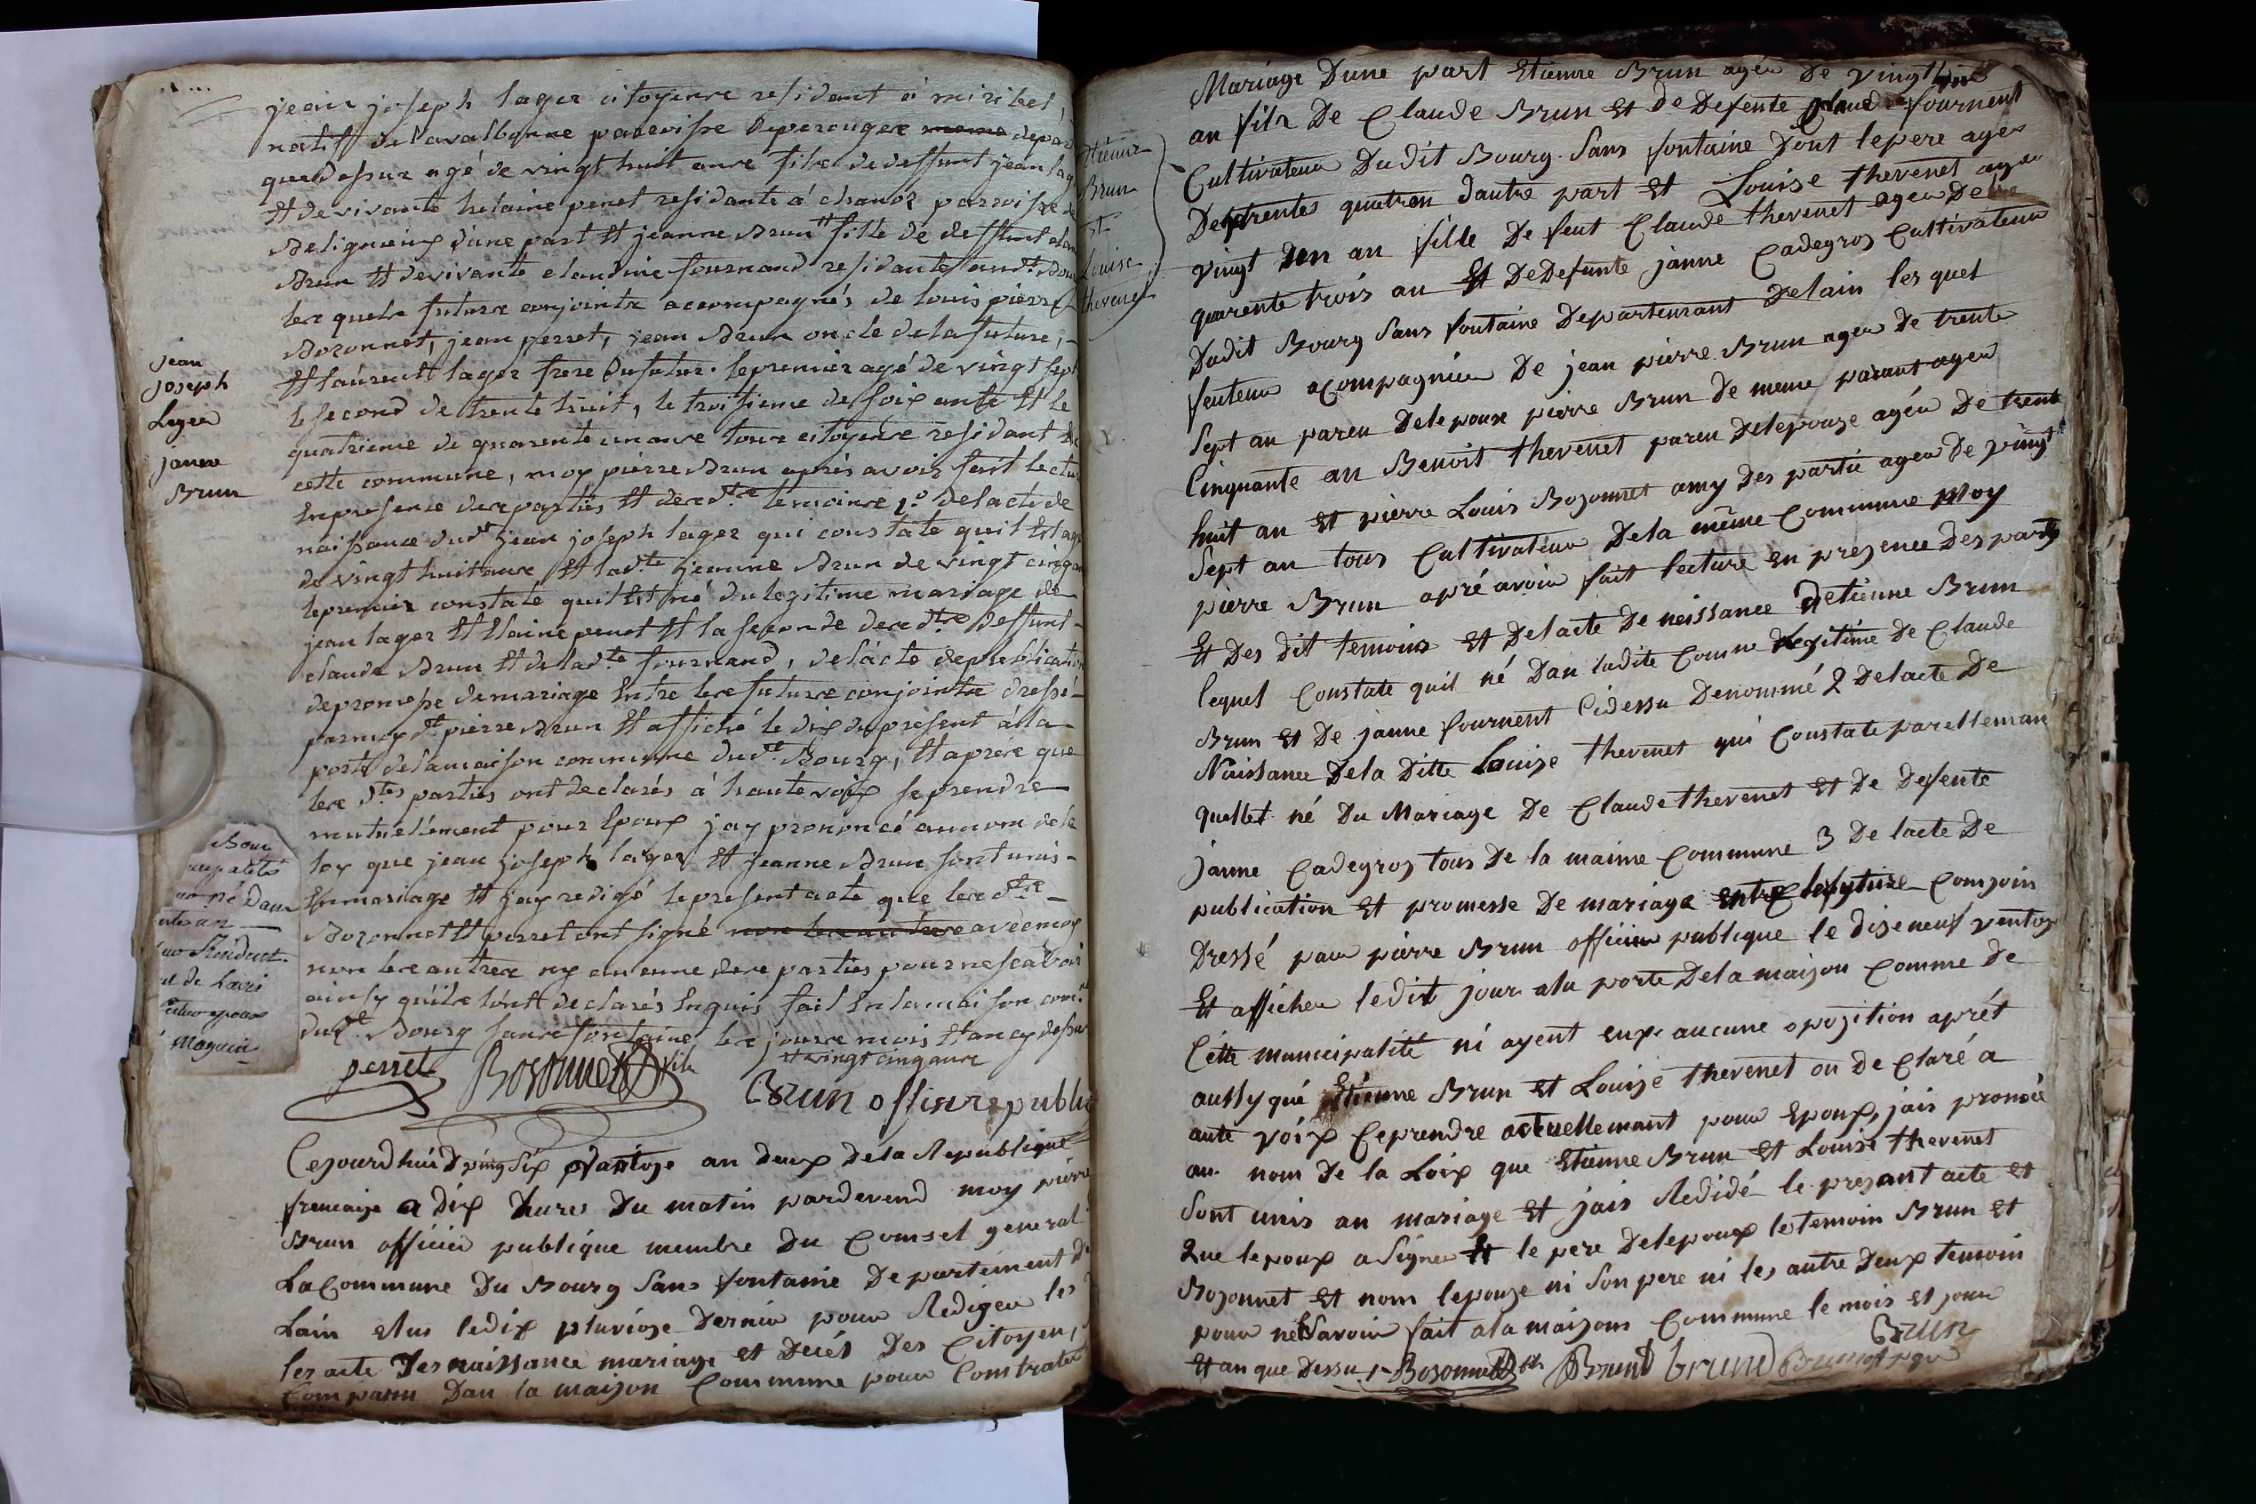 jean joseph lager citoyens residant à miribel,
natif de lavalbonne paroisse de perouges depar
que dessus agé de vingt huit ans fils de deffunt jean lag
Et de vivante helaine penet residante á chanoz paroisse de
Beligneux d'une part Et jeanne Brun fille de deffunt claud
Brun Et de vivante claudine fournand residante aud.t Bour
les quels futurs conjoints accompagnés de louis pierre
Bozonnet, jean perret, jean Brun oncle de la future,
Et laurent lager frere du futur. le premier agé de vingt sept
le second de trente huit, le troisieme de soixante Et le
quatrieme de quarente un ans tous citoyens residant de
cette commune, moy pierre Brun après avoir fait lectur
En presence des parties Et des d.ts temoins 1.o de l'acte de
naissance dud.t jean joseph lager qui constate quil Est agé
de vingt huit ans Et lad.te jeanne Brun de vingt cinq an
le premier constate quil Est né du legitime mariage de
jean lager Et Elaine penet Et la seconde des d.ts deffunt
claude Brun Et de lad.te fournand, de l'acte de publication
de promesse de mariage Entre les futurs conjoints dressé
par moy d.t pierre Brun Et affiché le dix du present à la
porte de la maison commune dud.t Bourg, Et aprés que
les d.tes parties ont declarés á haute voix se prendre
mutuellement pour Epoux j'ay prononcé au nom de la
loy que jean joseph lager Et jeanne Brun sont unis
En mariage Et j'ay redigé le present acte que les d.ts
Bozonnet Et perret ont signé non les autres avec moy
non les autres ny aucunne des parties pour ne scavoir
ainsy qu'ils l'ont declarés Enquis fait En la maison com.e
dud.t Bourg sans fontaine les jours mois Et an cy dessus
Et vingt cinq ans
jean
joseph
Lager
janne
Brun
perret Bozonnet fils
Brun officire public
Cejourdhuid vingt six vantoze an deux de la Republique
francaize a dix hures du matin pardevend moy pierre
Brun officier publique membre du Conset general
La Commune du Bourg Sans fontaine Departement de
Lain elus le dix pluvioze dernier pour Rediger les
les acte des naissance mariage et decés des Citoyen,
Comparu dan la maizon Commune pour Contrater
Etienne
Brun
Et
Louise
thevenet
Mariage dune part Etienne Brun agée de vingt huit
an fils De Claude Brun Et de Defente fournent
Cultivateur Dudit Bourg Sans fontaine Dont le pere ager
quatre dautre part Et Louize thevenet age
vingt un an fille De feut Claude thevenet ager De
quarente trois an Et De Defunte janne Cadegros Cultivateur
Dudit Bourg Sans fontaine Departement Delain les quel
feuteur acompagnée De jean pierre Brun ager de trente
Sept an paren De lepoux pierre Brun de meme parant ager
Cinquante an Benoit thevenet paren De lepouze agée De trente
huit an Et pierre Louis Bozonnet amy Des partie ager de vingt
Sept an tous Cultivateur De la même Commune Moy
pierre Brun apré avoir fait lecture En prezence Des partis
Et Des dit temoins Et De lacte De neissance detienne Brun
lequel Constate quil né Dan ladite Comune legitime De Claude
Brun Et De janne fournent Cidessu Denommé 2 De lacte De
Naissance De la Ditte Louize thevenet qui Constate parelleman
quellet né Du Mariage De Claude thevenet Et De Defente
janne Cadegros tous De la maime Commune 3 De lacte De
publication Et promesse De mariage entre les future Conjoin
Dressé par pierre Brun officier publique le dize neuf ventoze
Et afficher ledit jour a la porte De la maizon Comme De
Cette municipalité ni ayent eux aucune opozition aprét
aussy qué Etienne Brun Et Louize thevenet on De Claré a
aute voix Ceprendre actuellemant pour Epoux, jais pronocé
au nom De la Loix que Etienne Brun Et Louise thevenet
Sont unis an mariage Et jais Redidé le prezant acte et
Que lepoux a Signer Et le pere De lepoux les temoin Brun Et
Bozonnet Et nom lepouze ni Son pere ni les autre Deux temoin
pour ne Savoir fait a la maizons Commune le mois et jour
Et an que Dessu Bozonnet fils Brund brund Brun